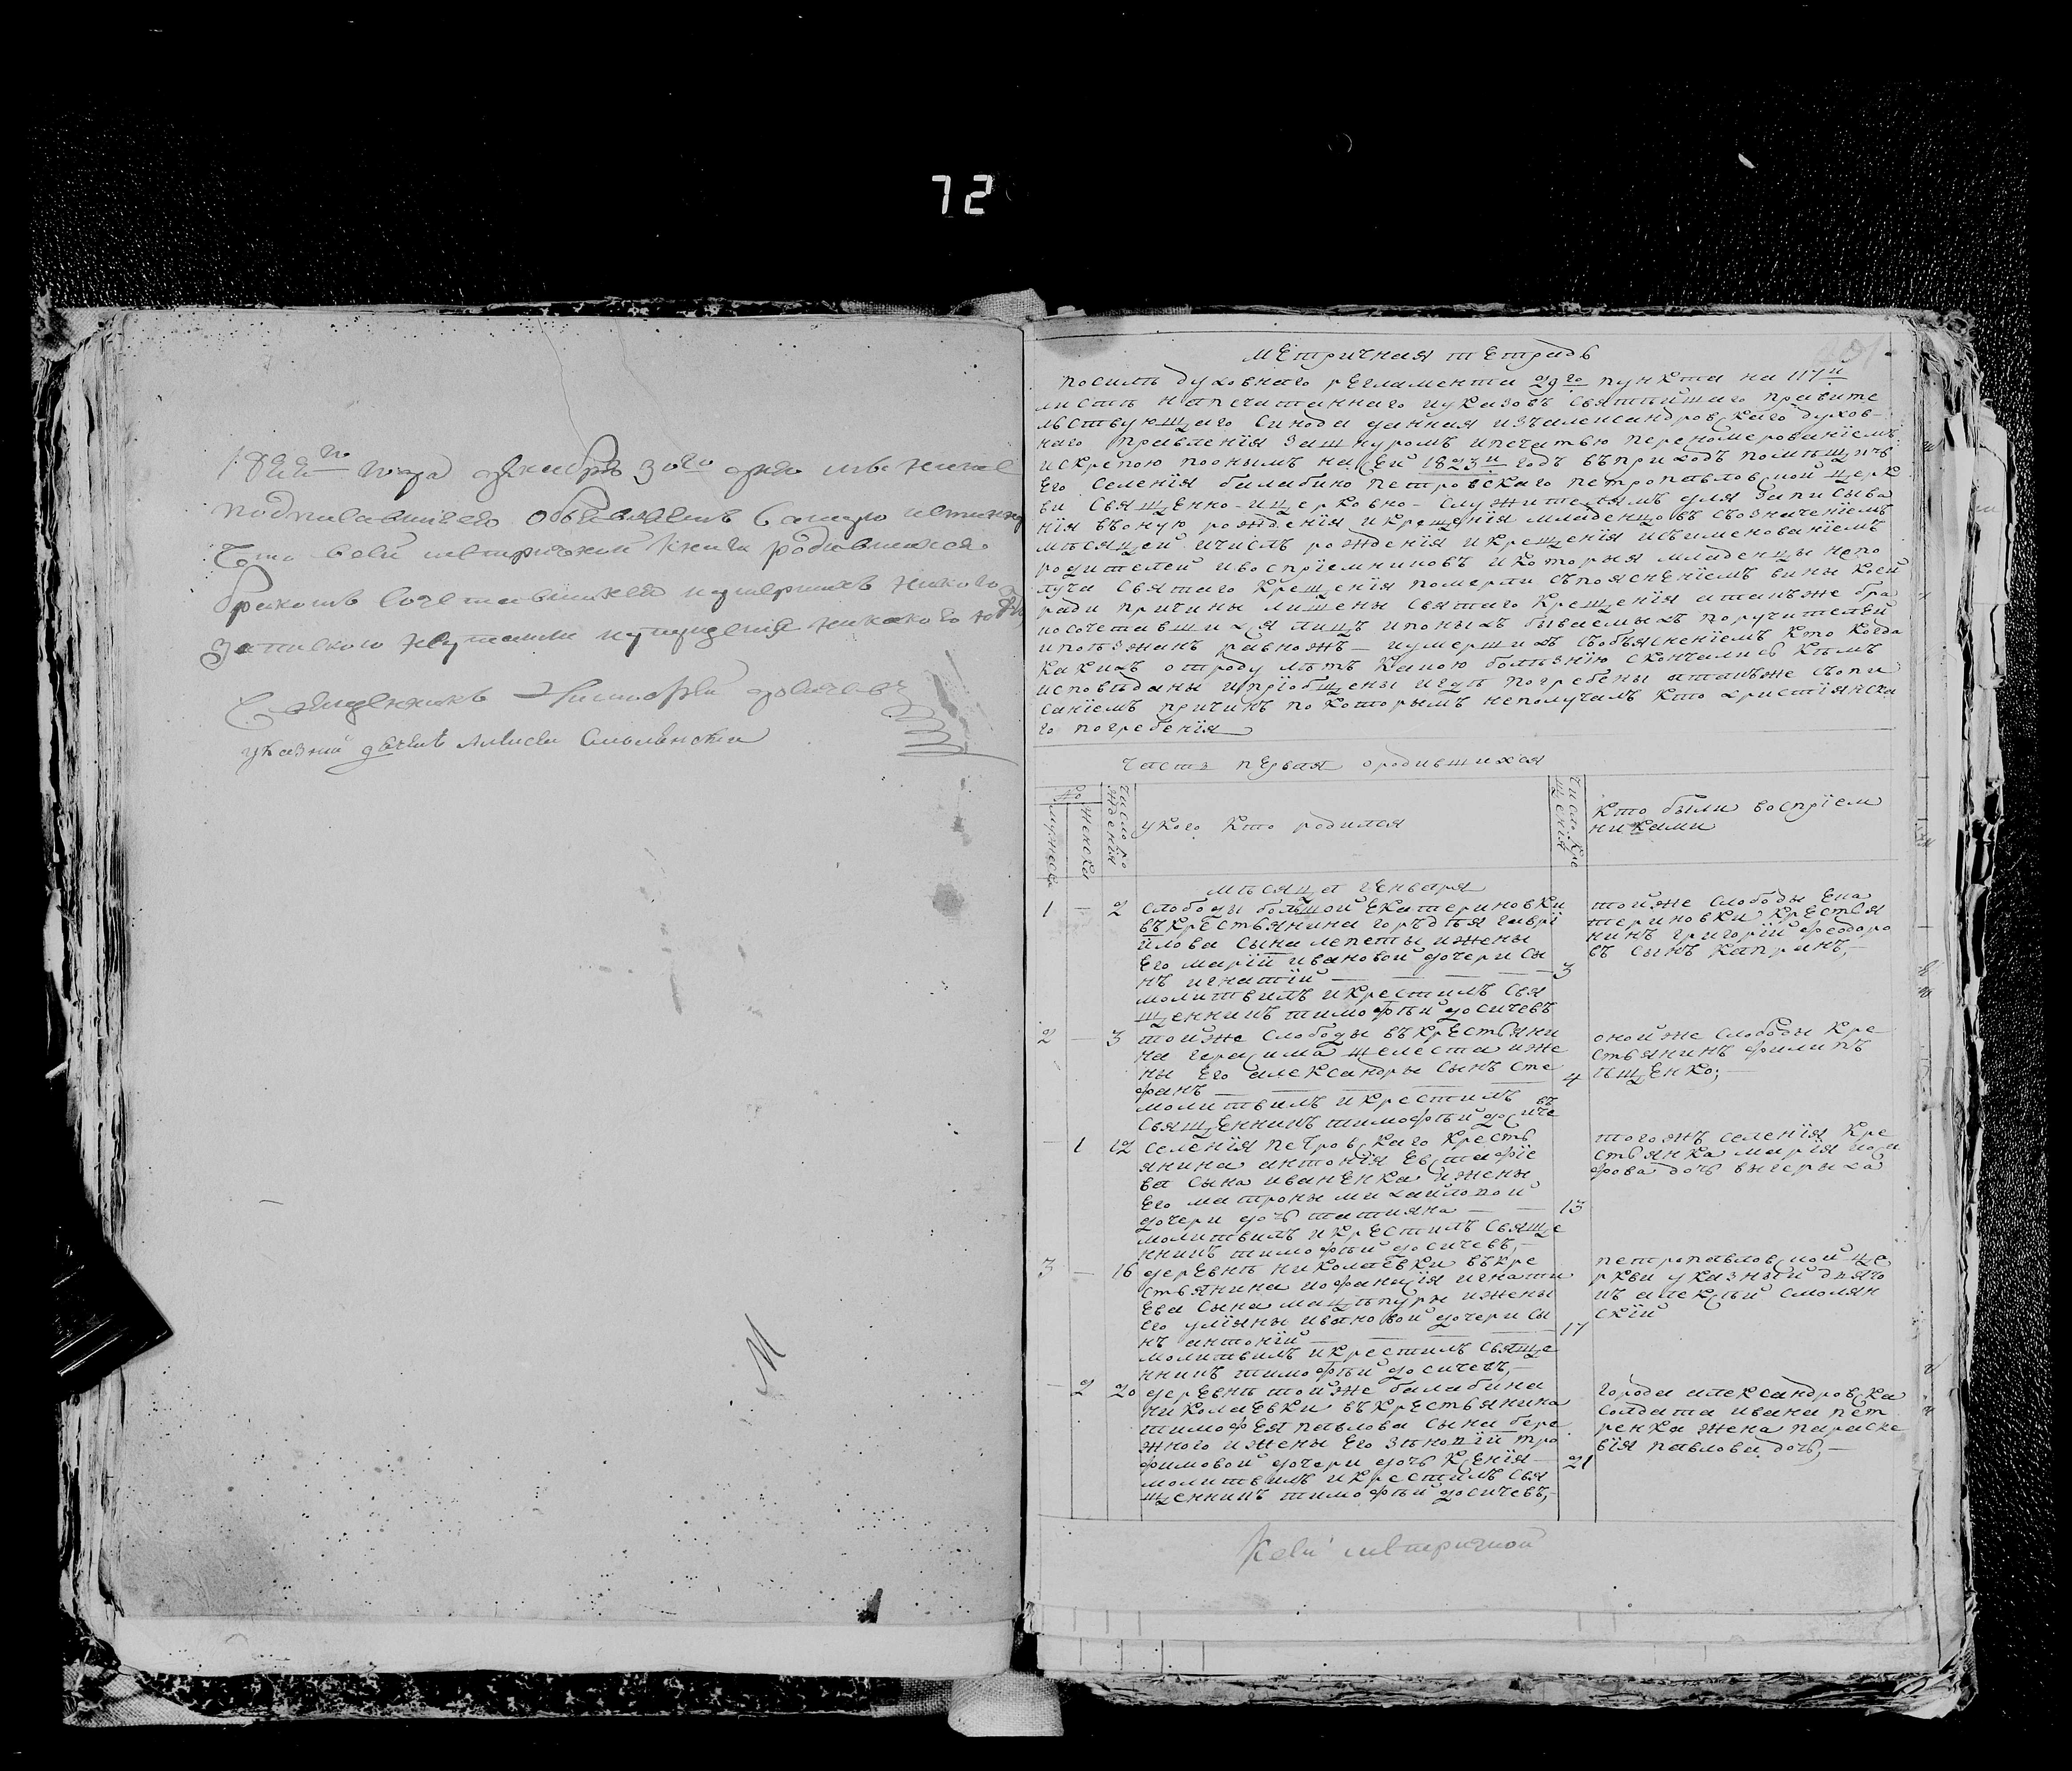 72
1822го года декабря 30го дня мы ниже
подписавшиеся объявляемъ самую истинну
Что всей метрической книги родившихся
бракомъ сочетавшихся и умершихъ никого
запискою неутаили и упущения никакого
Священникъ Тимофей Досичевъ
указний дячекъ Алексей Смолянский
М
Метричная тетрадь
посилѣ духовнаго регламента 29го пункта на 117й
листѣ напечатаннаго иуказовъ святѣйшаго правите
льствующаго синода данная изъалександровскаго духов-
наго правленія зашнуромъ ипечатью перономерованіемъ
искрепою пооныхъ насей 1823й годъ въприходъ помѣщичъ
его селенія балабино петровскаго петропавловской церк
ви священно-ицерковно-служителямъ для записыва
нія въоную рожденія икрещенія младенцовъ съозначеніемъ
мѣсяцей ичислъ рожденія икрещенія исъименованіемъ
родителей ивоспріемниковъ икоторыя младенцы непо
луча святаго крещенія померли съпоясненіемъ вины коей
ради причины лишены святаго крещенія атакъже бра
косочетавшихся лицъ ипоныхъ бываемыхъ поручителей
ипоѣзжанъ равножъ — иумершихъ съобъясненіемъ кто когда
какихъ отроду лѣтъ какою болѣзнію скончались кѣмъ
исповѣданы ипріобщены игдѣ погребены атакъже съопи
саніемъ причинъ покоторымъ неполучилъ кто християнска
го погребенія
часть первая ородившихся
No
мужеска
женска
число ро
жденія
укого кто родился
число кре
щенія
кто были воспріем
никами
мѣсяца генваря
1 — 2 слободы большой Екатериновки
въкрестьянина гордѣя гаврі
илова сына лепеты ижены
Его маріи ивановой дочери сы
нъ игнатій — 3
молитвилъ икрестилъ свя
щенникъ тимофѣй досичевъ
тойже слободы Ека
териновки крестья
нинъ григорій феодоро
въ сынъ капринъ,—
2 — 3 тойже слободы въкрестьяни
на герасима шелеста иже
ны Его александры сынъ сте
фанъ — 4
молитвилъ икрестилъ
священникъ тимофѣй досиче
въ
онойже слободы кре
стьянинъ филипъ
ѣщенко;
— 1 12 селенія петровскаго кресть
янина антонія Евстафіе
ва сына иваненка ижены
Его матроны михайловой
дочери дочь татияна — 13
молитвилъ икрестилъ священ
нникъ тимофѣй досичевъ,—
тогожъ селенія кре
стьянка марія
фова дочь вычерыха
3 — 16 деревнѣ николаевки въкре
стьянина иофанасія игнати
ева сына мацѣпуры ижены
Его уліяны ивановой дочери сы
нъ антоній — 17
молитвилъ икрестилъ свяще
нникъ тимофѣй досичевъ,—
петропавловской це
ркви указный дьячо
къ алексѣй смолян
скій
— 2 20 деревнѣ тойже балабина
николаевки въкрестьянина
тимофея павлова сына бере
жного ижены Его зѣновіи тро
фимовой дочери дочь ксенія — 21
молитвилъ икрестилъ свя
щенникъ тимофѣй досичевъ,—
города александровска
солдата ивана пет
ренка жена параске
вія павлова дочь,—
Ксей метричной